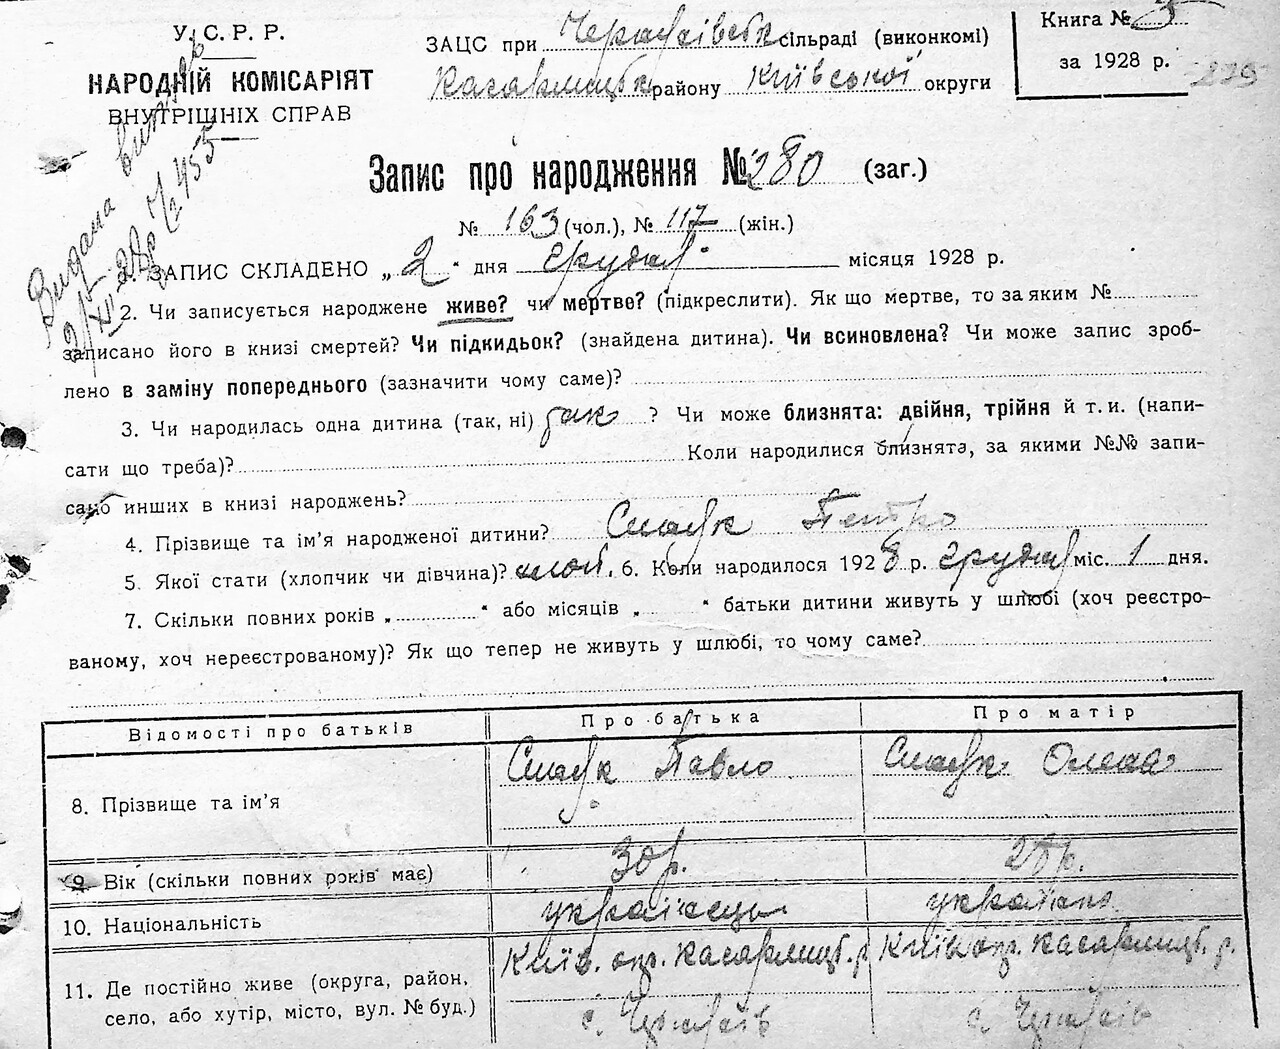 У. С. Р. Р.
НАРОДНІЙ КОМІСАРІЯТ
ВНУТРІШНІХ СПРАВ
ЗАЦС при сільраді (виконкомі)
району Київської округи
Книга № 5
за 1928 р.
Видана
Запис про народження № 280 (заг.)
№ 163 (чол.), № 117 (жін.)
ЗАПИС СКЛАДЕНО „2“ дня грудня місяця 1928 р.
2. Чи записується народжене живе? чи мертве? (підкреслити). Як що мертве, то за яким №
записано його в книзі смертей? Чи підкидьок? (знайдена дитина). Чи всиновлена? Чи може запис зроб-
лено в заміну попереднього (зазначити чому саме)?
3. Чи народилась одна дитина (так, ні) так ? Чи може близнята: двійня, трійня й т. и. (напи-
сати що треба)? Коли народилися близнята, за якими №№ запи-
сано инших в книзі народжень?
4. Прізвище та ім’я народженої дитини? Петро
5. Якої стати (хлопчик чи дівчина)? 6. Коли народилося 1928 р. грудня міс. 1 дня.
7. Скільки повних років „ “ або місяців „ “ батьки дитини живуть у шлюбі (хоч реєстро-
ваному, хоч нереєстрованому)? Як що тепер не живуть у шлюбі, то чому саме?
Відомості про батьків Про батька Про матір
8. Прізвище та ім’я Павло Олена
9. Вік (скільки повних років має) 30 р. 28 р.
10. Національність українець українка
11. Де постійно живе (округа, район, Київ. окр. р. Київ окр. р.
село, або хутір, місто, вул. № буд.) с. с.